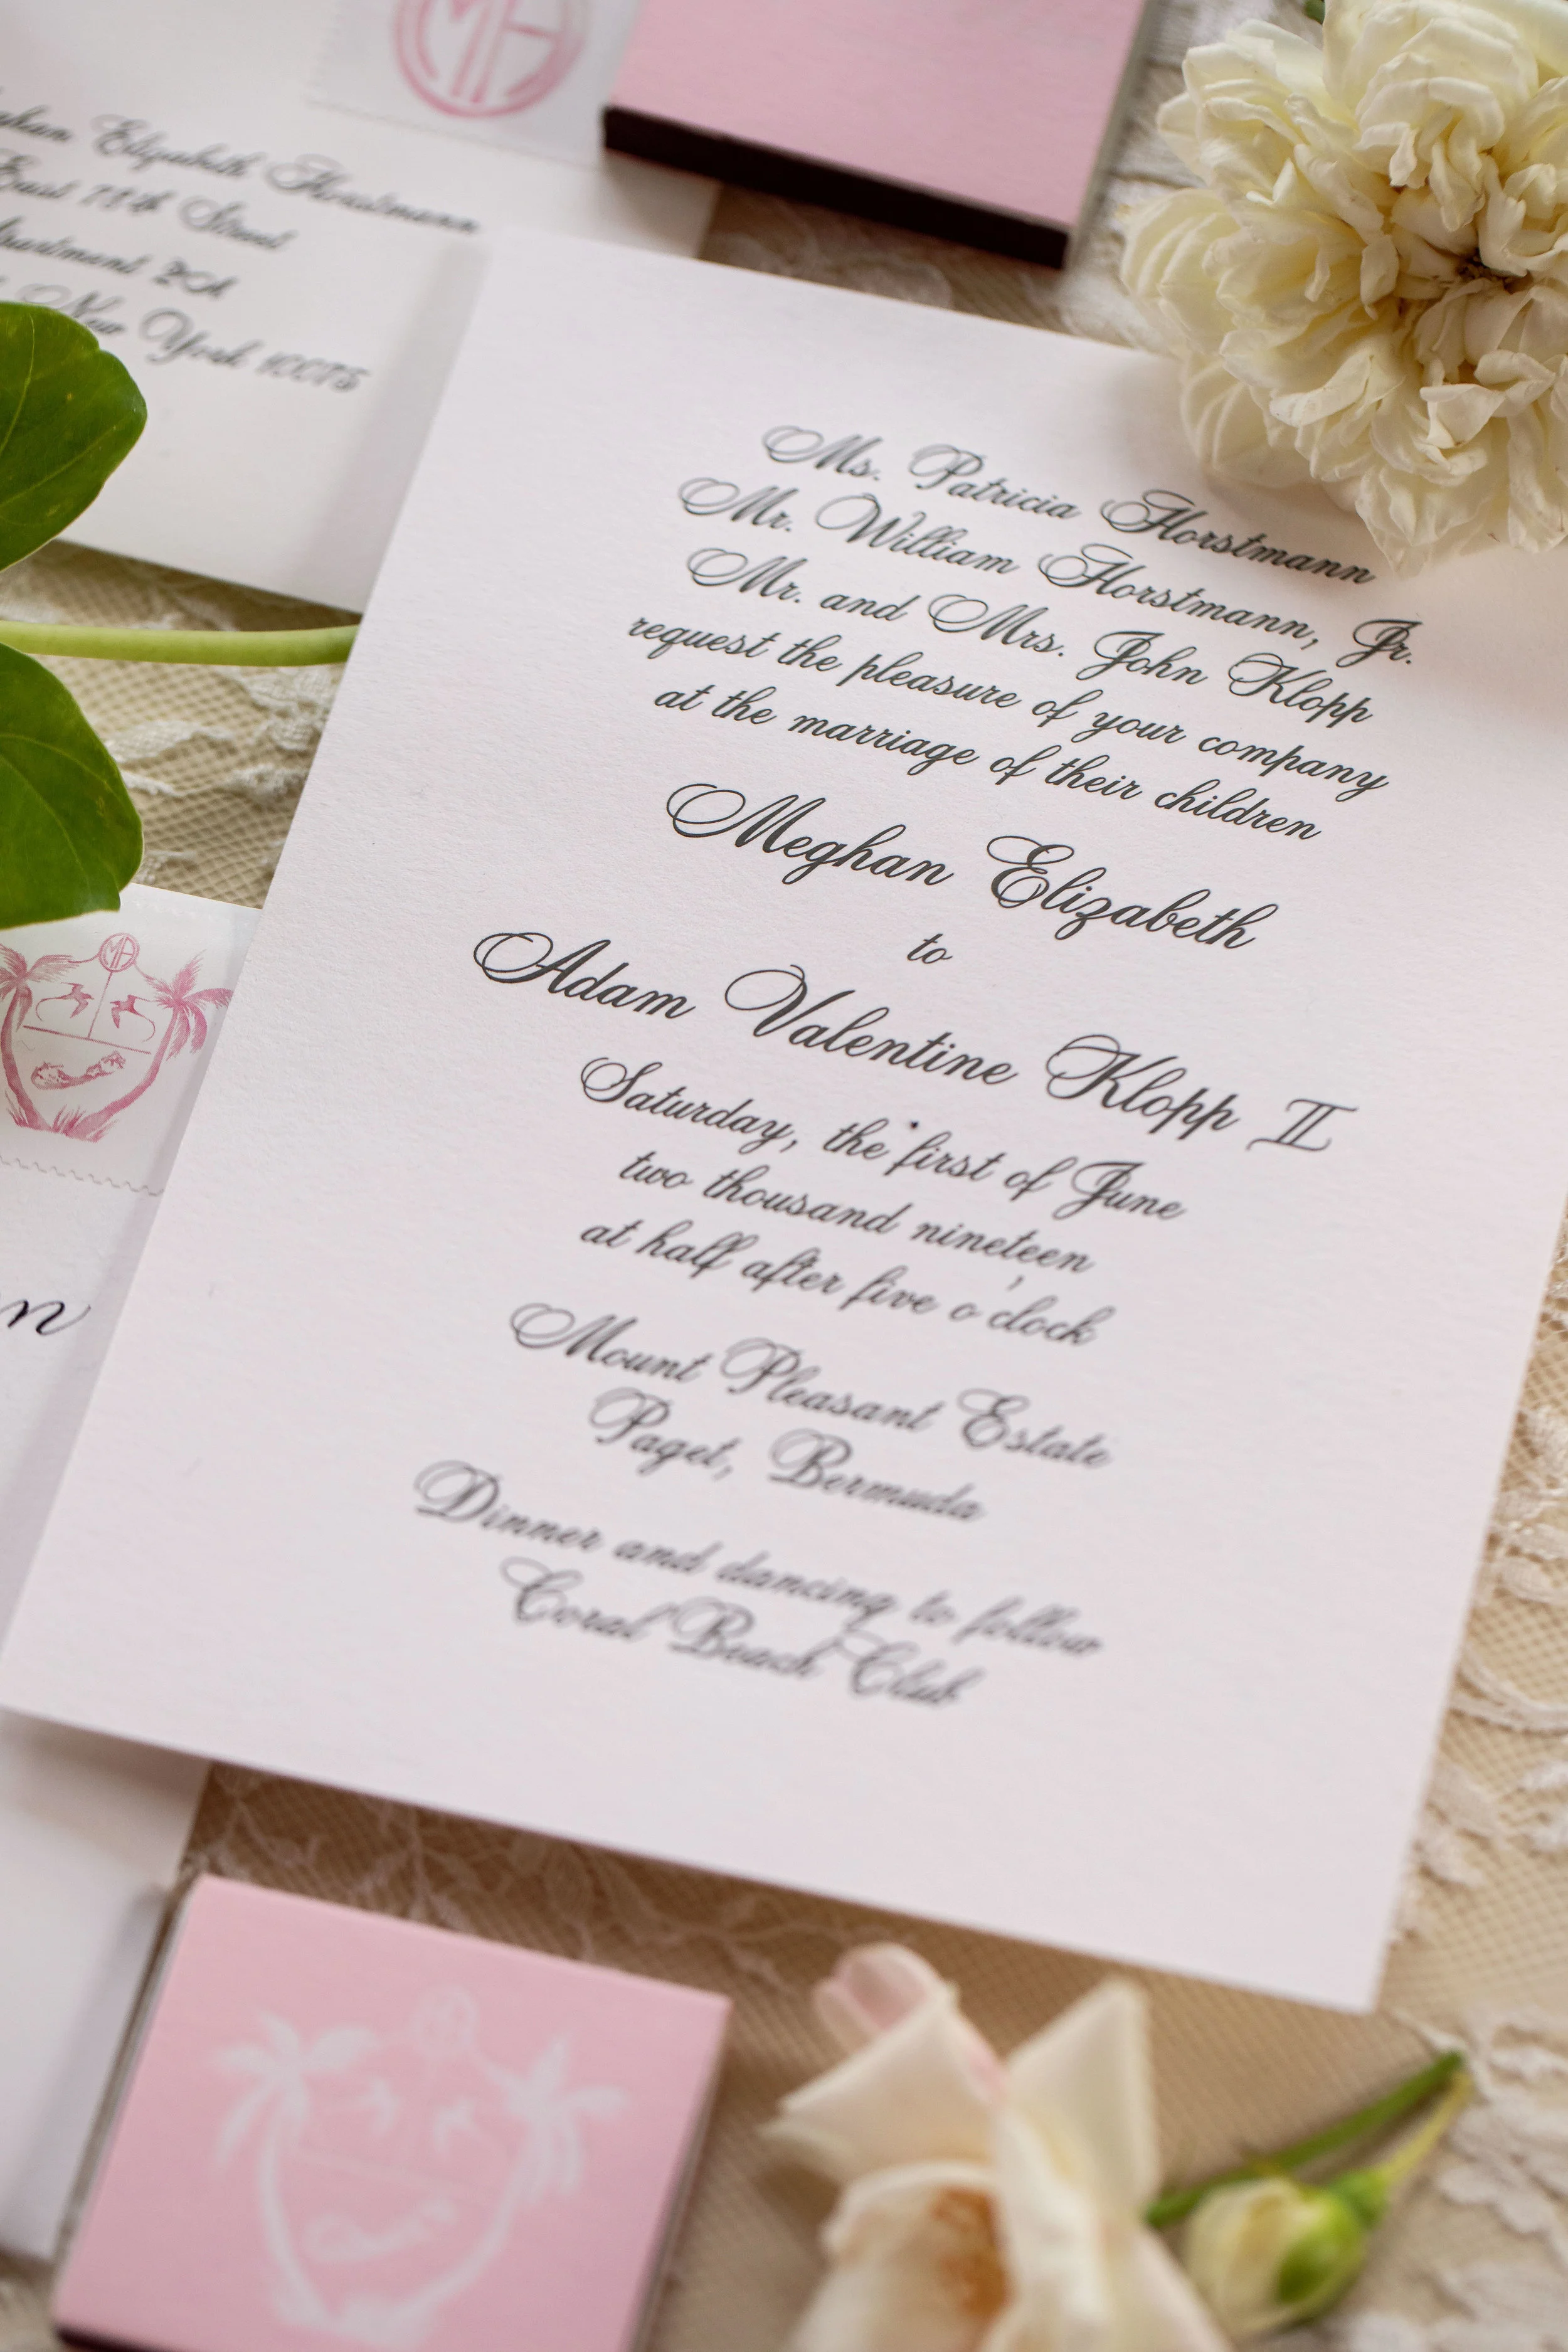 MH
Elizabeth Horstmann
East 78th Street
Apartment 2CA
New York 10075
Ms. Patricia Horstmann
Mr. William Horstmann, Jr.
Mr. and Mrs. John Klopp
request the pleasure of your company
at the marriage of their children
Meghan Elizabeth
to
Adam Valentine Klopp II
Saturday, the first of June
two thousand nineteen
at half after five o'clock
Mount Pleasant Estate
Paget, Bermuda
Dinner and dancing to follow
Coral Beach Club
MA